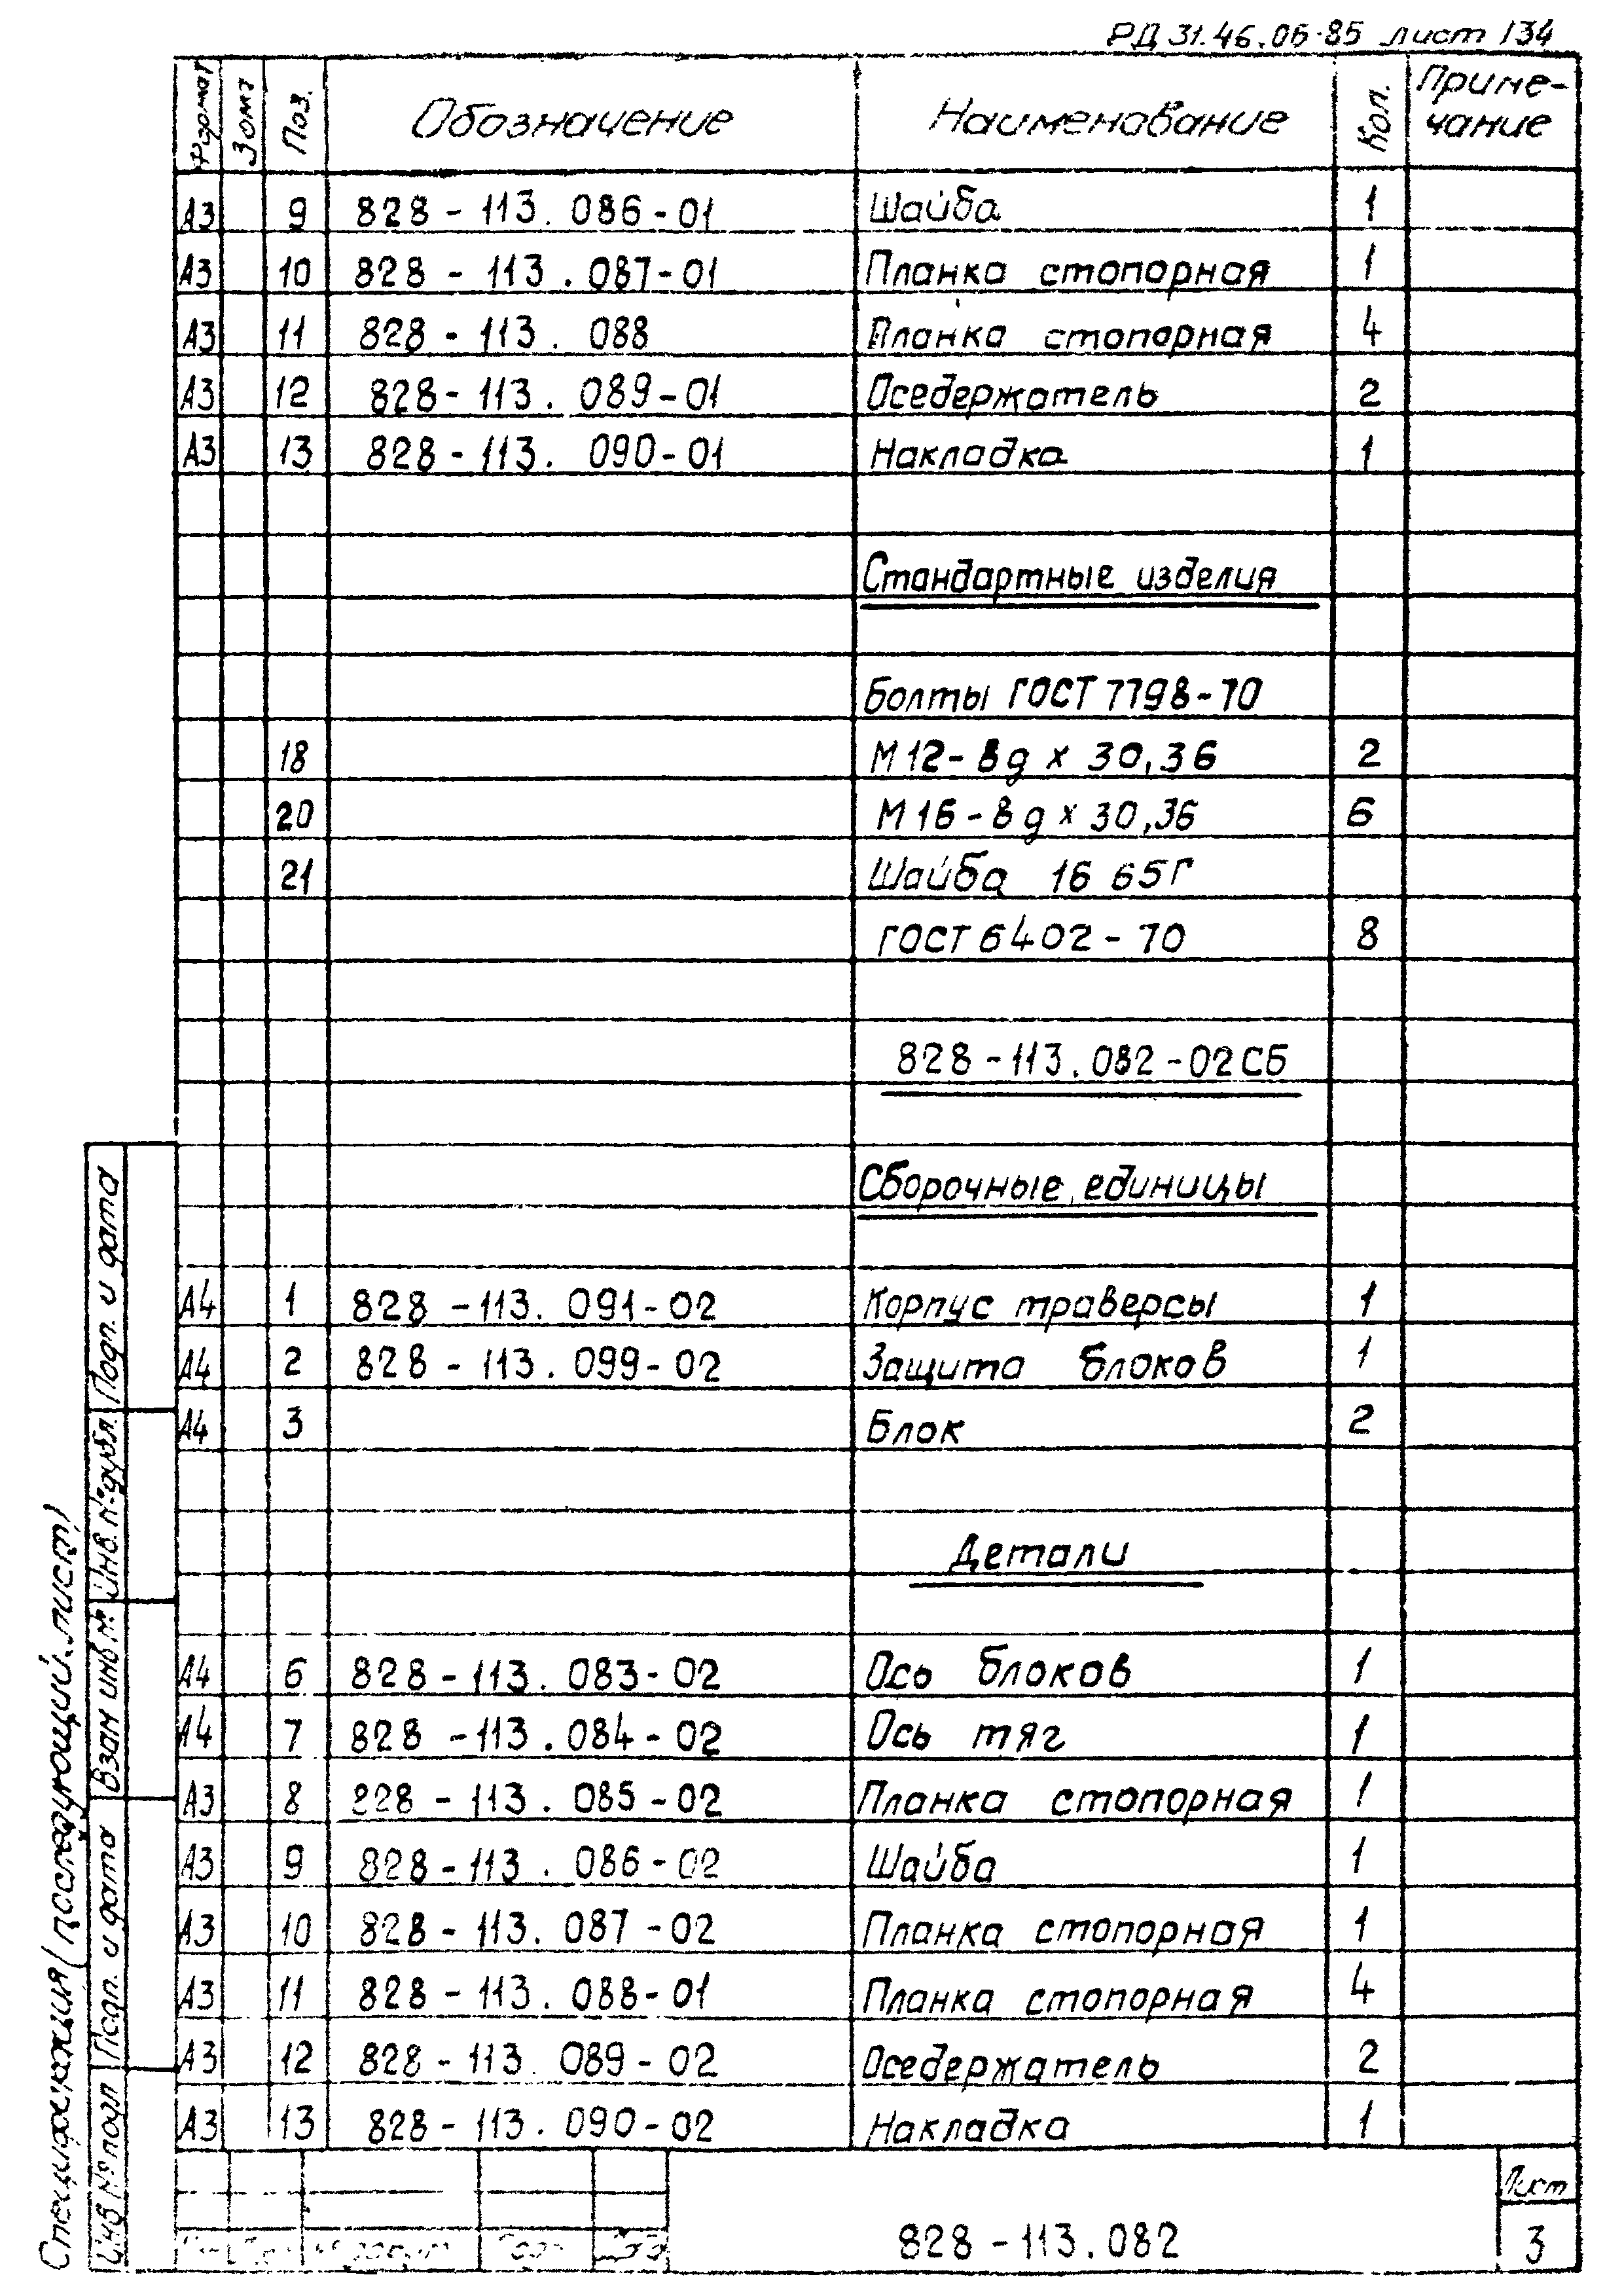 РД 31.46.06-85 лист 134
Формат Зона Поз. Обозначение Наименование Кол. Приме-
чание
А3 9 828-113.086-01 Шайба 1
А3 10 828-113.087-01 Планка стопорная 1
А3 11 828-113.088 Планка стопорная 4
А3 12 828-113.089-01 Оседержатель 2
А3 13 828-113.090-01 Накладка 1
Стандартные изделия
Болты ГОСТ 7798-70
18 М12-8g х 30,36 2
20 М16-8g х 30,36 6
21 Шайба 16 65Г
ГОСТ 6402-70 8
828-113.082-02СБ
Сборочные единицы
А4 1 828-113.091-02 Корпус траверсы 1
А4 2 828-113.099-02 Защита блоков 1
А4 3 Блок 2
Детали
А4 6 828-113.083-02 Ось блоков 1
А4 7 828-113.084-02 Ось тяг 1
А3 8 828-113.085-02 Планка стопорная 1
А3 9 828-113.086-02 Шайба 1
А3 10 828-113.087-02 Планка стопорная 1
А3 11 828-113.088-01 Планка стопорная 4
А3 12 828-113.089-02 Оседержатель 2
А3 13 828-113.090-02 Накладка 1
828-113.082
Лист
3
Спецификация (последующий лист)
Инв № подл
Подп. и дата
Взам инв. №
Инв. № дубл.
Подп. и дата